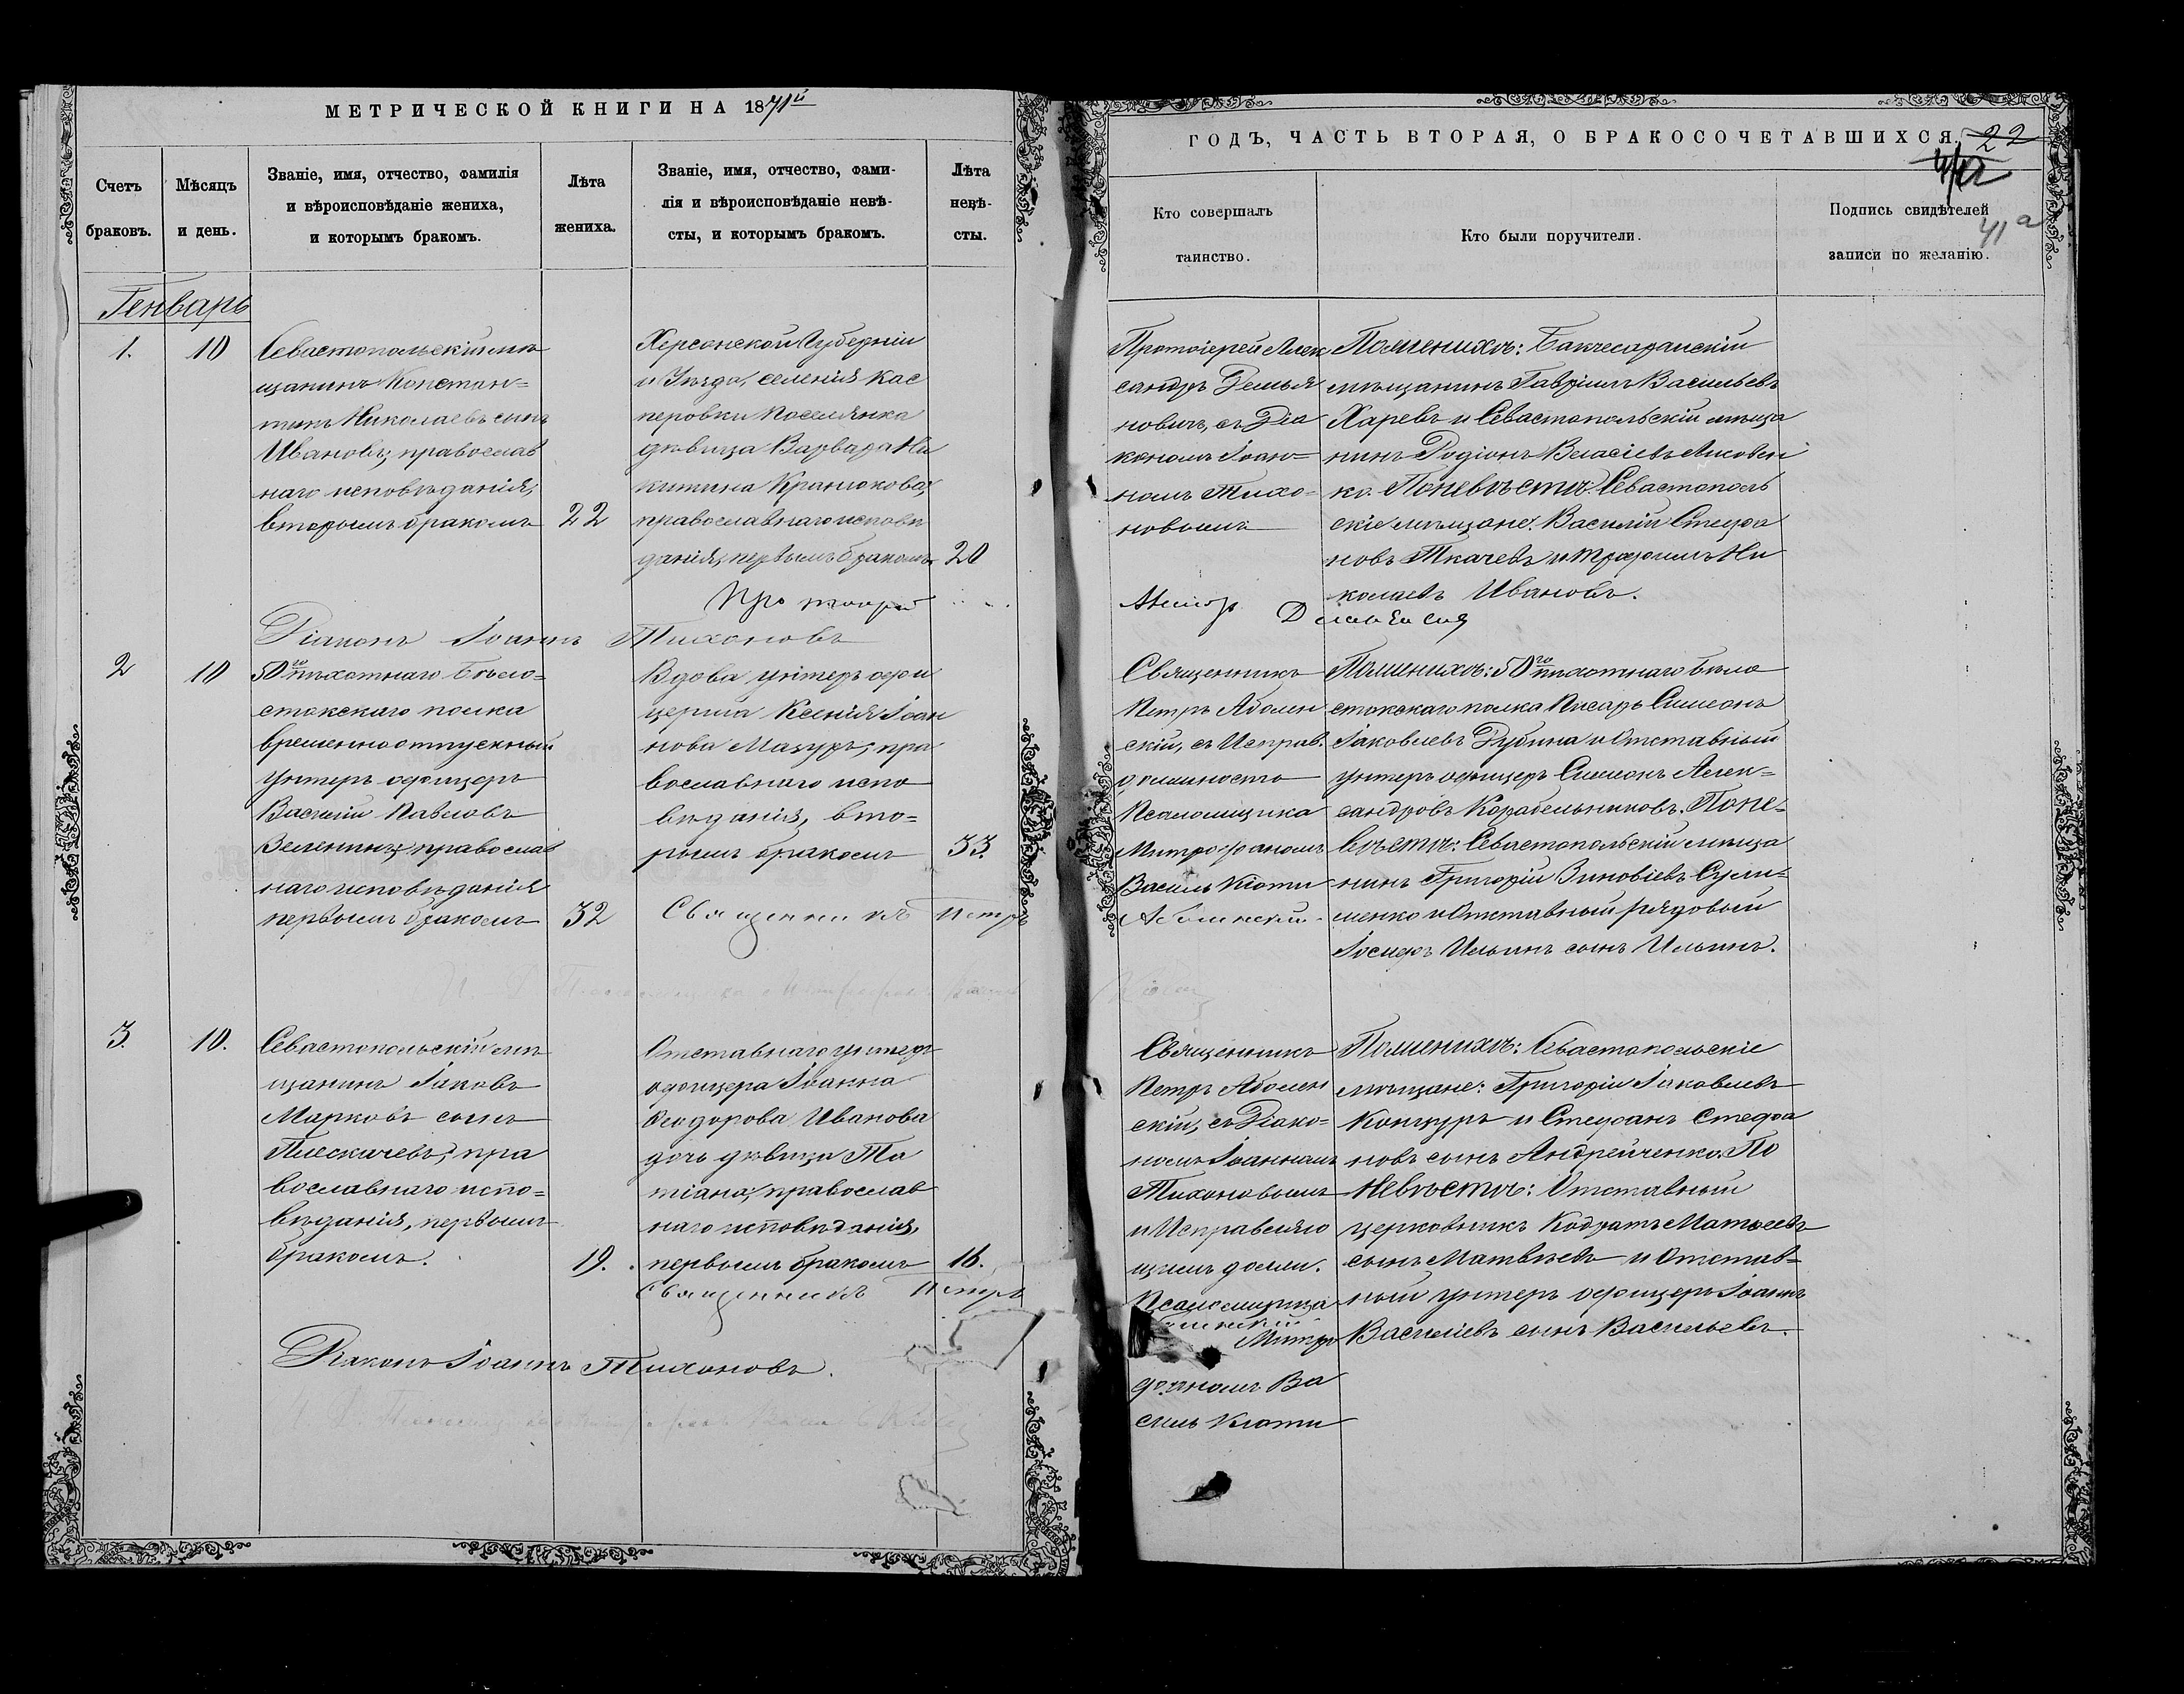 МЕТРИЧЕСКОЙ КНИГИ НА 1871й
Счетъ
браковъ.
Мѣсяцъ
и день.
Званіе, имя, отчество, фамилія
и вѣроисповѣданіе жениха,
и которымъ бракомъ.
Лѣта
жениха.
Званіе, имя, отчество, фами-
лія и вѣроисповѣданіе невѣ-
сты, и которымъ бракомъ.
Лѣта
невѣ-
сты.
ГОДЪ, ЧАСТЬ ВТОРАЯ, О БРАКОСОЧЕТАВШИХСЯ. 22
41 а
Кто совершалъ
таинство.
Кто были поручители.
Подпись свидѣтелей
записи по желанію.
Генварь
1.
10
Севастопольскій мѣ
щанинъ Констан=
тинъ Николаевъ сынъ
Ивановъ, православ
наго исповѣданія,
вторымъ бракомъ
22
Херсонской Губерніи
и Уѣзда, селенія Кас
перовки поселянка
дѣвица Варвара Ни
китина Кранюкова,
православнаго исповѣ
данія, первымъ бракомъ
20
Протоіерей Алек
сандръ Демья
новичъ, съ Діа
кономъ Іоан=
номъ Тихо=
новымъ
По женихѣ: Бахчесарайскій
мѣщанинъ Гавріилъ Васильевъ
Харевъ и Севастопольскій мѣща
нинъ Родіонъ Власіевъ Лисовен
ко. По невѣстѣ: Севастополь
скіе мѣщане: Василій Стефа
новъ Ткачевъ и Трофимъ Ни
колаевъ Ивановъ.
Діаконъ Іоаннъ Тихоновъ
2
10
50го пѣхотнаго Бѣло=
стокскаго полка
временноотпускный
унтеръ офицеръ
Василій Павловъ
Зеленинъ, православ
наго исповѣданія
первымъ бракомъ
32
Вдова унтеръ офи
церша Ксенія Іоан
нова Мазуръ, пра
вославнаго испо
вѣданія, вто=
рымъ бракомъ
33.
Священникъ Петръ
Священникъ
Петръ Аболен
скій, съ Исправ.
должность
Псаломщика
Митрофаномъ
Василь Кіоти
Аболенскій.
По женихѣ: 50го пѣхотнаго Бѣло
стокскаго полка Писарь Симеонъ
Іаковлевъ Дубина и Отставный
унтеръ офицеръ Симеонъ Алек=
сандровъ Корабельниковъ. По не=
вѣстѣ: Севастопольскій мѣща
нинъ Григорій Зиновіевъ Сули=
менко и Отставный рядовый
Іосифъ Ильинъ сынъ Ильинъ.
3.
10.
Севастопольскій мѣ
щанинъ Іаковъ
Марковъ сынъ
Плескачевъ, пра
вославнаго испо=
вѣданія, первымъ
бракомъ.
19.
Отставнаго унтеръ
офицера Іоанна
Ѳеодорова Иванова
дочь дѣвица Та
тіана, православ
наго исповѣданія,
первымъ бракомъ
16.
Священникъ Петръ
Діаконъ Іоаннъ Тихоновъ.
Священникъ
Петръ Аболен
скій, съ Діако=
номъ Іоанномъ
Тихоновымъ
и Исправляю
щимъ долж.
Псаломщика
Митро
фаномъ Ва
силь Кіоти
По женихѣ: Севастопольскіе
мѣщане: Григорій Іаковлевъ
Концуръ и Стефанъ Стефа
новъ сынъ Андрейченко. По
невѣстѣ: Отставный
церковникъ Кодратъ Матвѣевъ
сынъ Матвѣевъ и Отстав=
ный унтеръ офицеръ Іоаннъ
Василіевъ сынъ Васильевъ.